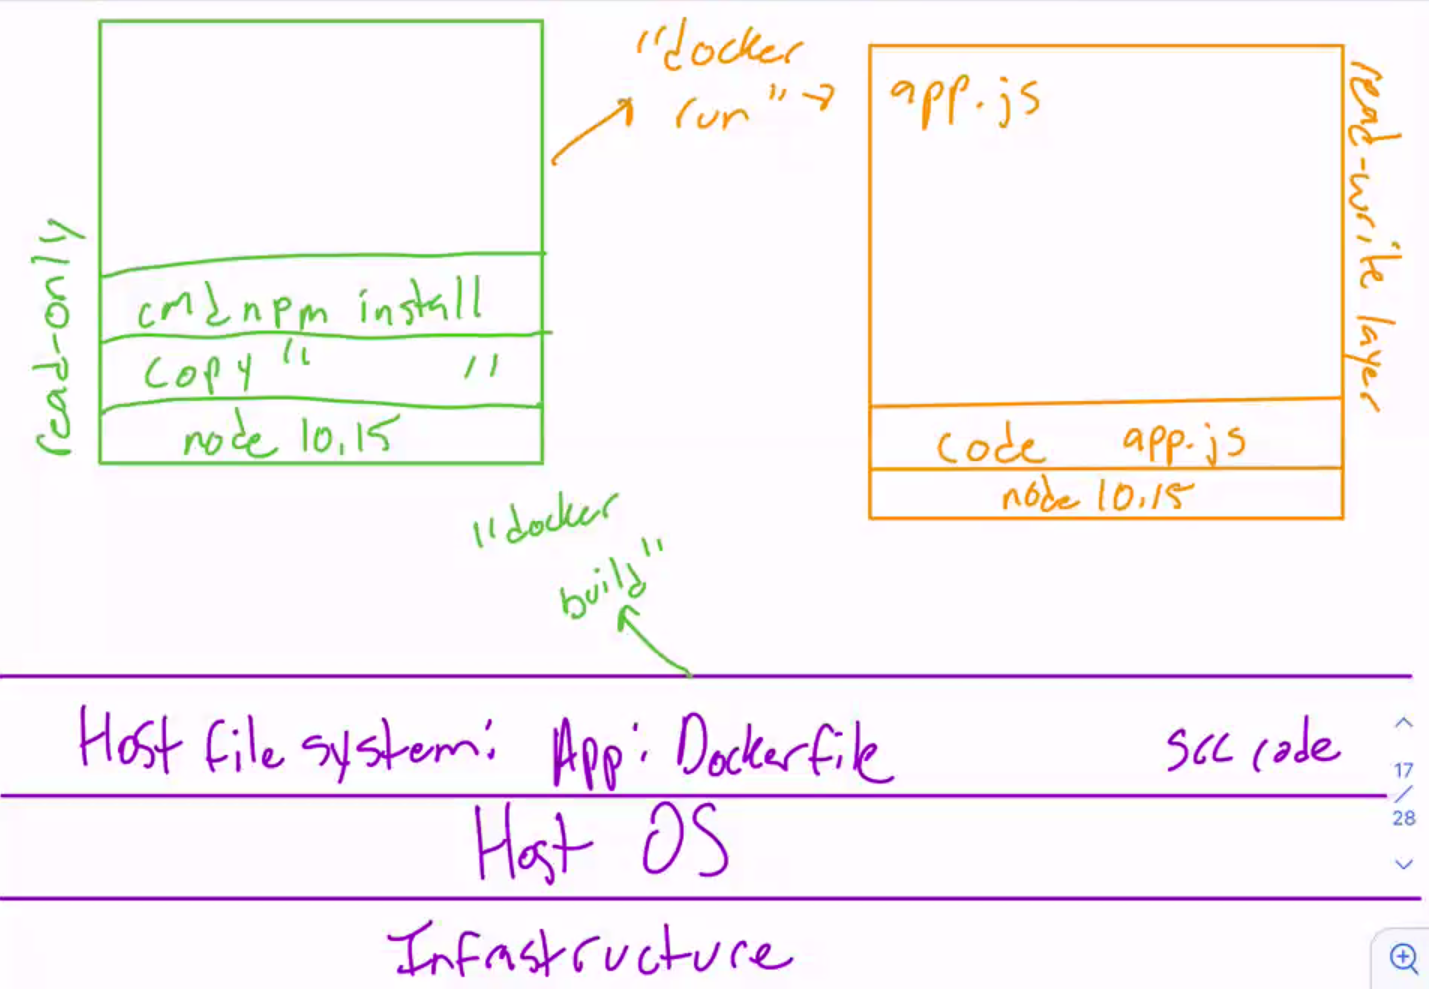 read-only
cmd npm install
copy " "
node 10.15
"docker
run" →
app.js
read-write layer
code app.js
node 10.15
"docker
build"
Host file system: App: Dockerfile
code
17
/
28
Host OS
Infastructure